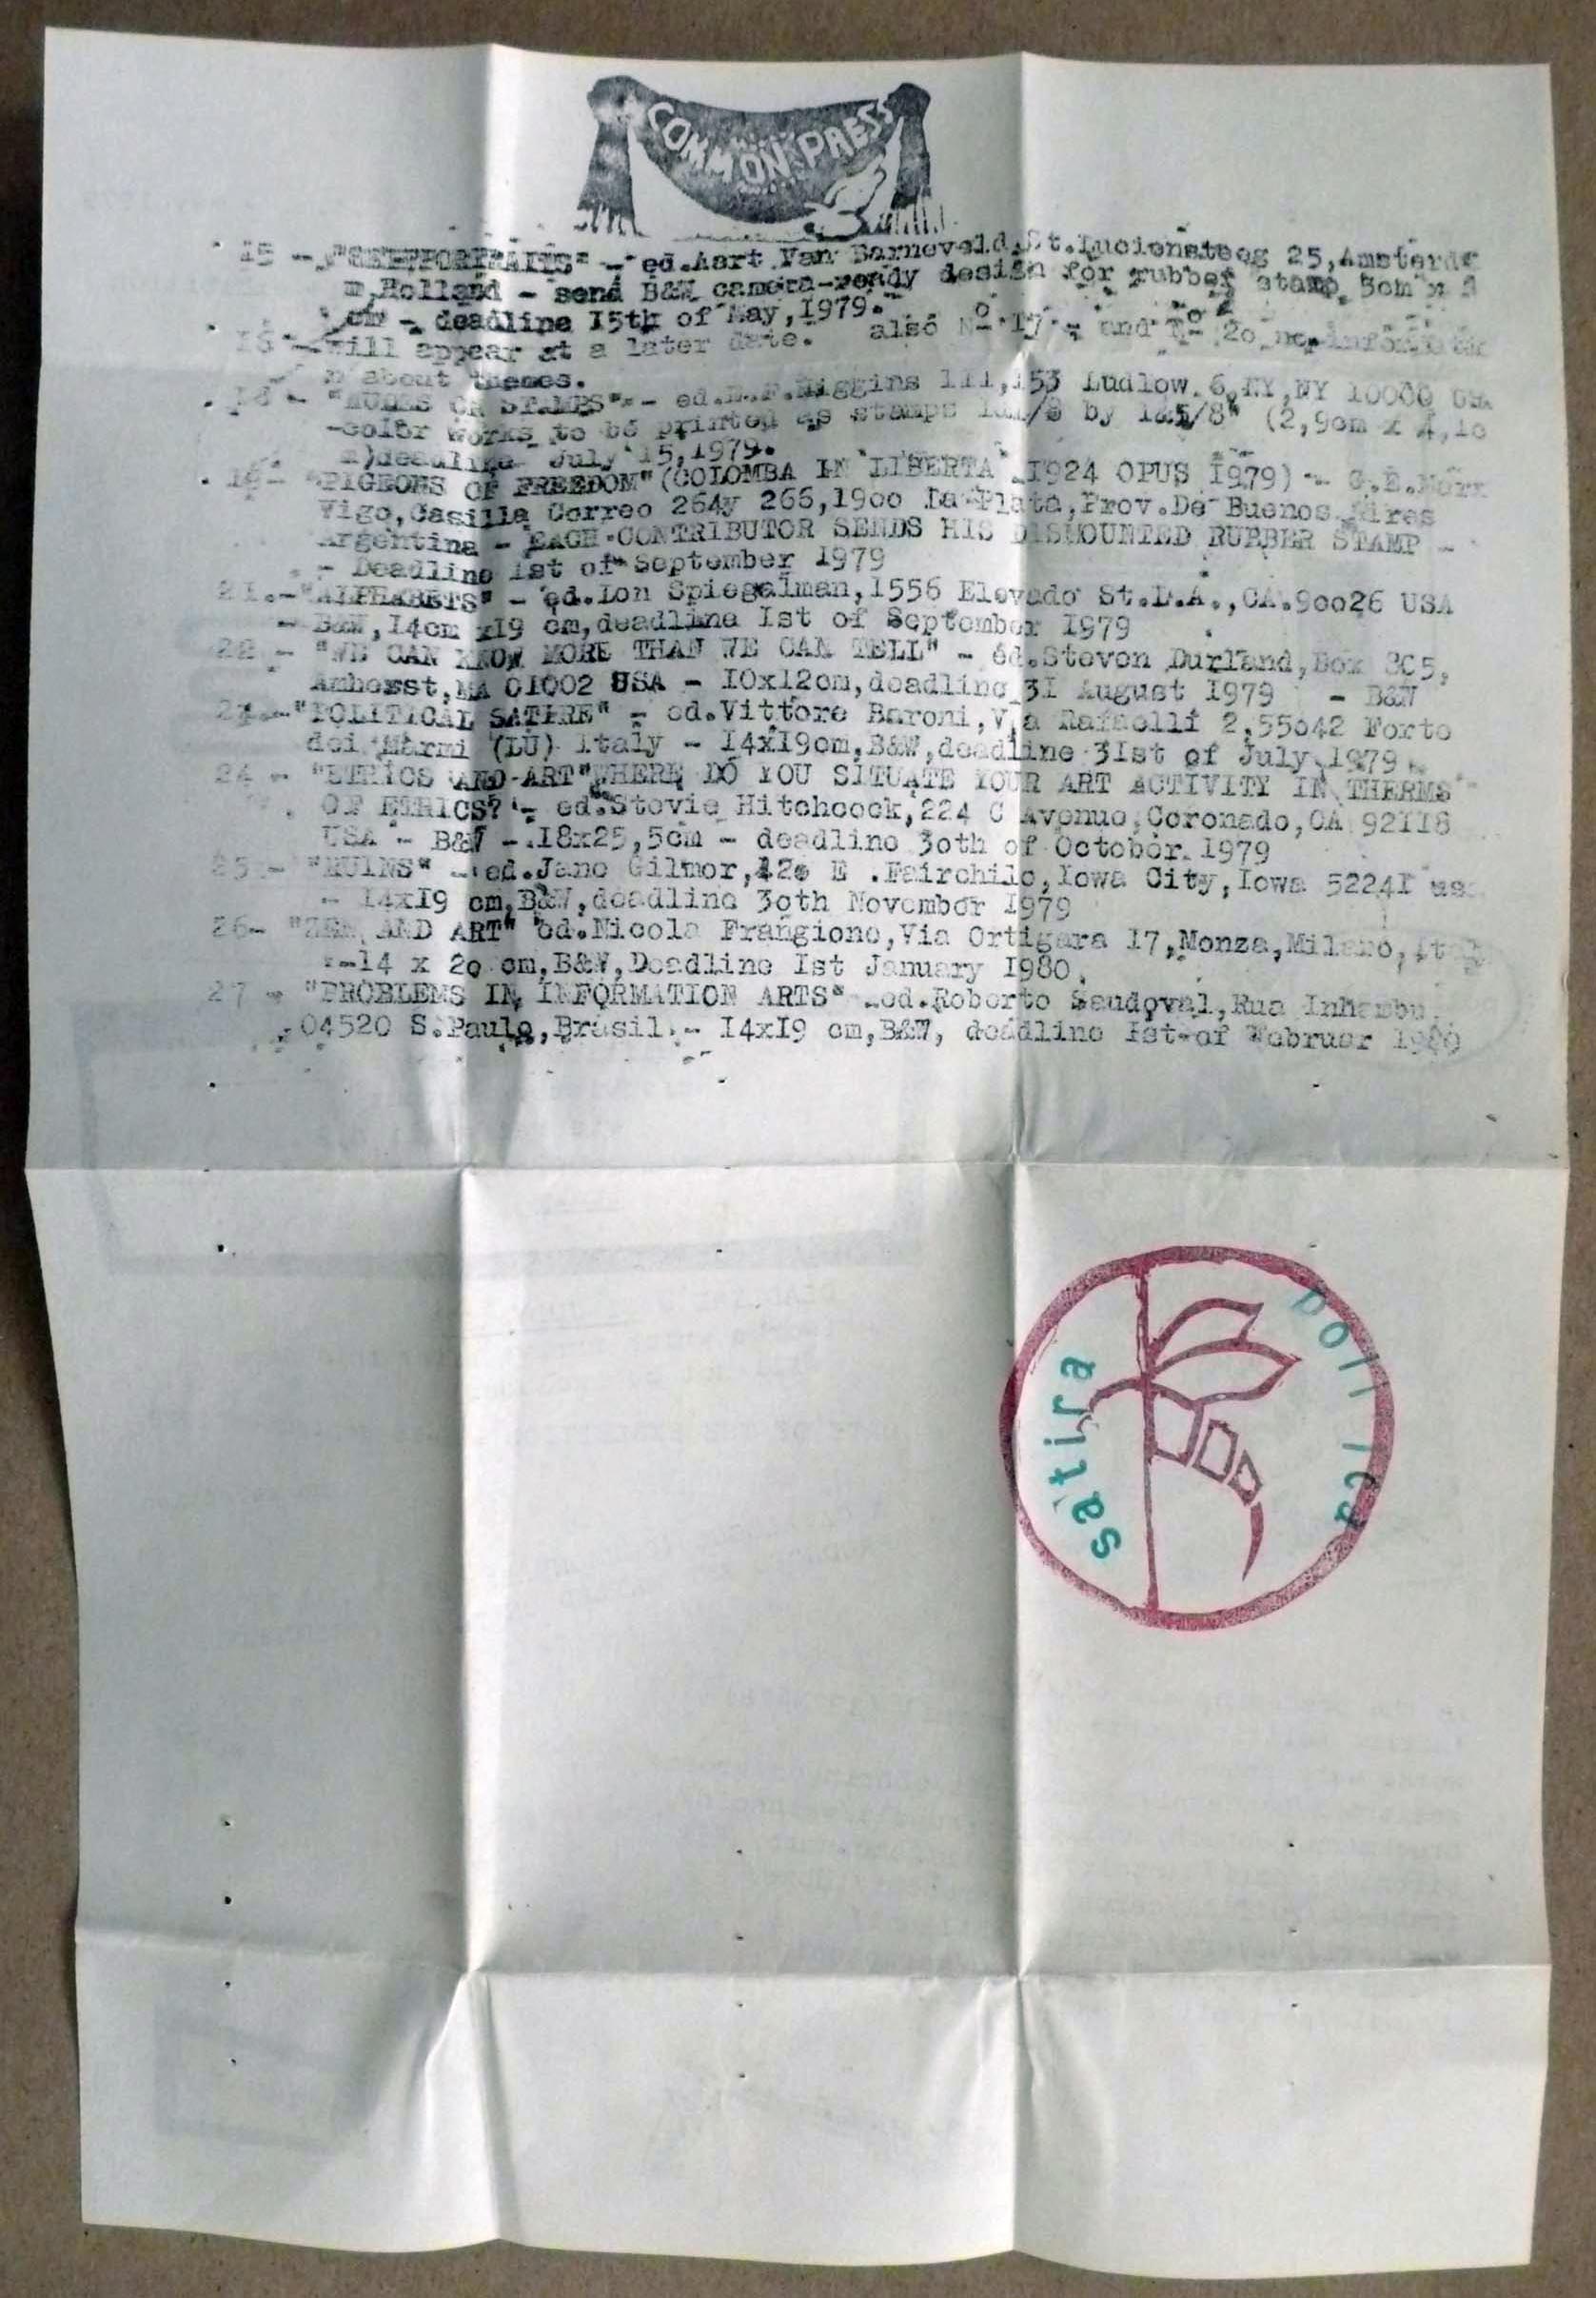 COMMONPRESS
15 - - ed.Aart Van Barneveld,St.Luciensteeg 25,Amsterda
m,Holland - send B&W camera-ready design for rubber stamp 3cm x
cm - deadline I5th of May,I979.
16 - will appear at a later date. also No I7 - and No 2o no
n about themes.
18 - OR STAMPS" - ed.E.F.Higgins III,153 Ludlow 6,NY,NY
-color works to be printed as stamps by (2,9cm x 4,1c
m)deadline July 15,1979.
19- "PIGEONS OF FREEDOM"(COLOMBA IN LIBERTA I924 OPUS I979) - G.E.Marx
Vigo,Casilla Correo 264y 266,19oo La Plata,Prov.De Buenos Aires
Argentina - EACH CONTRIBUTOR SENDS HIS DISMOUNTED RUBBER STAMP -
- Deadline Ist of September I979
21.-"ALPHABETS" - ed.Lon Spiegelman,1556 Elevado St.L.A.,CA.9oo26 USA
- B&W,I4cm x19 cm,deadline Ist of September 1979
22 - "WE CAN KNOW MORE THAN WE CAN TELL" - ed.Steven Durland,Box 3C5,
Amherst,MA 01002 USA - I0xI2cm,deadline 31 August I979 - B&W
23.-"POLITICAL SATIRE" - ed.Vittore Baroni,Via Rafaelli 2,55o42 Forte
dei Marmi (LU) Italy - I4x19cm,B&W,deadline 3Ist of July 1979
24 - "ETHICS AND ART"WHERE DO YOU SITUATE YOUR ART ACTIVITY IN THERMS
OF ETHICS? - ed.Stevie Hitchcock,224 C Avenue,Coronado,CA 92118
USA - B&W - 18x25,5cm - deadline 3oth of October 1979
25 - "RUINS" - ed.Jane Gilmor, E .Fairchild,Iowa City,Iowa 5224I
- I4xI9 cm,B&W,deadline 3oth November I979
26- "ZEN AND ART" ed.Nicola Frangione,Via Ortigara 17,Monza,Milano,
-14 x 2o cm,B&W,Deadline Ist January I980
27 - "PROBLEMS IN INFORMATION ARTS" -ed.Roberto Sandoval,Rua Inhambu
-04520 S.Paulo,Brasil - I4xI9 cm,B&W, deadline Ist of Februar 1980
satira
politica